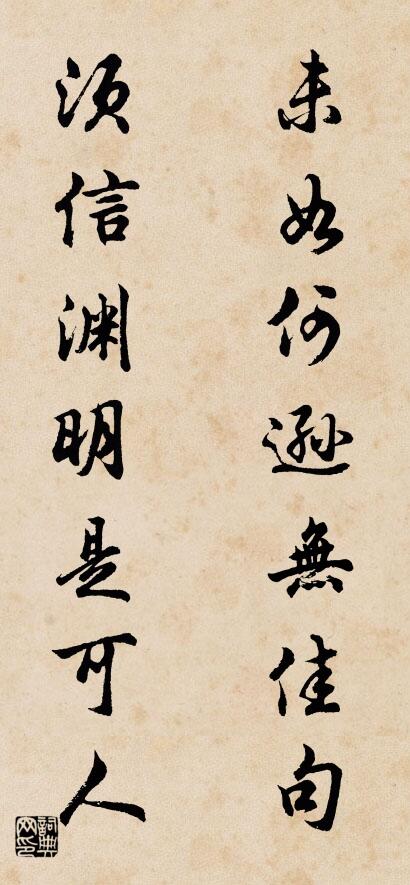 未如何遜無佳句
須信渊明是可人
詞典网印